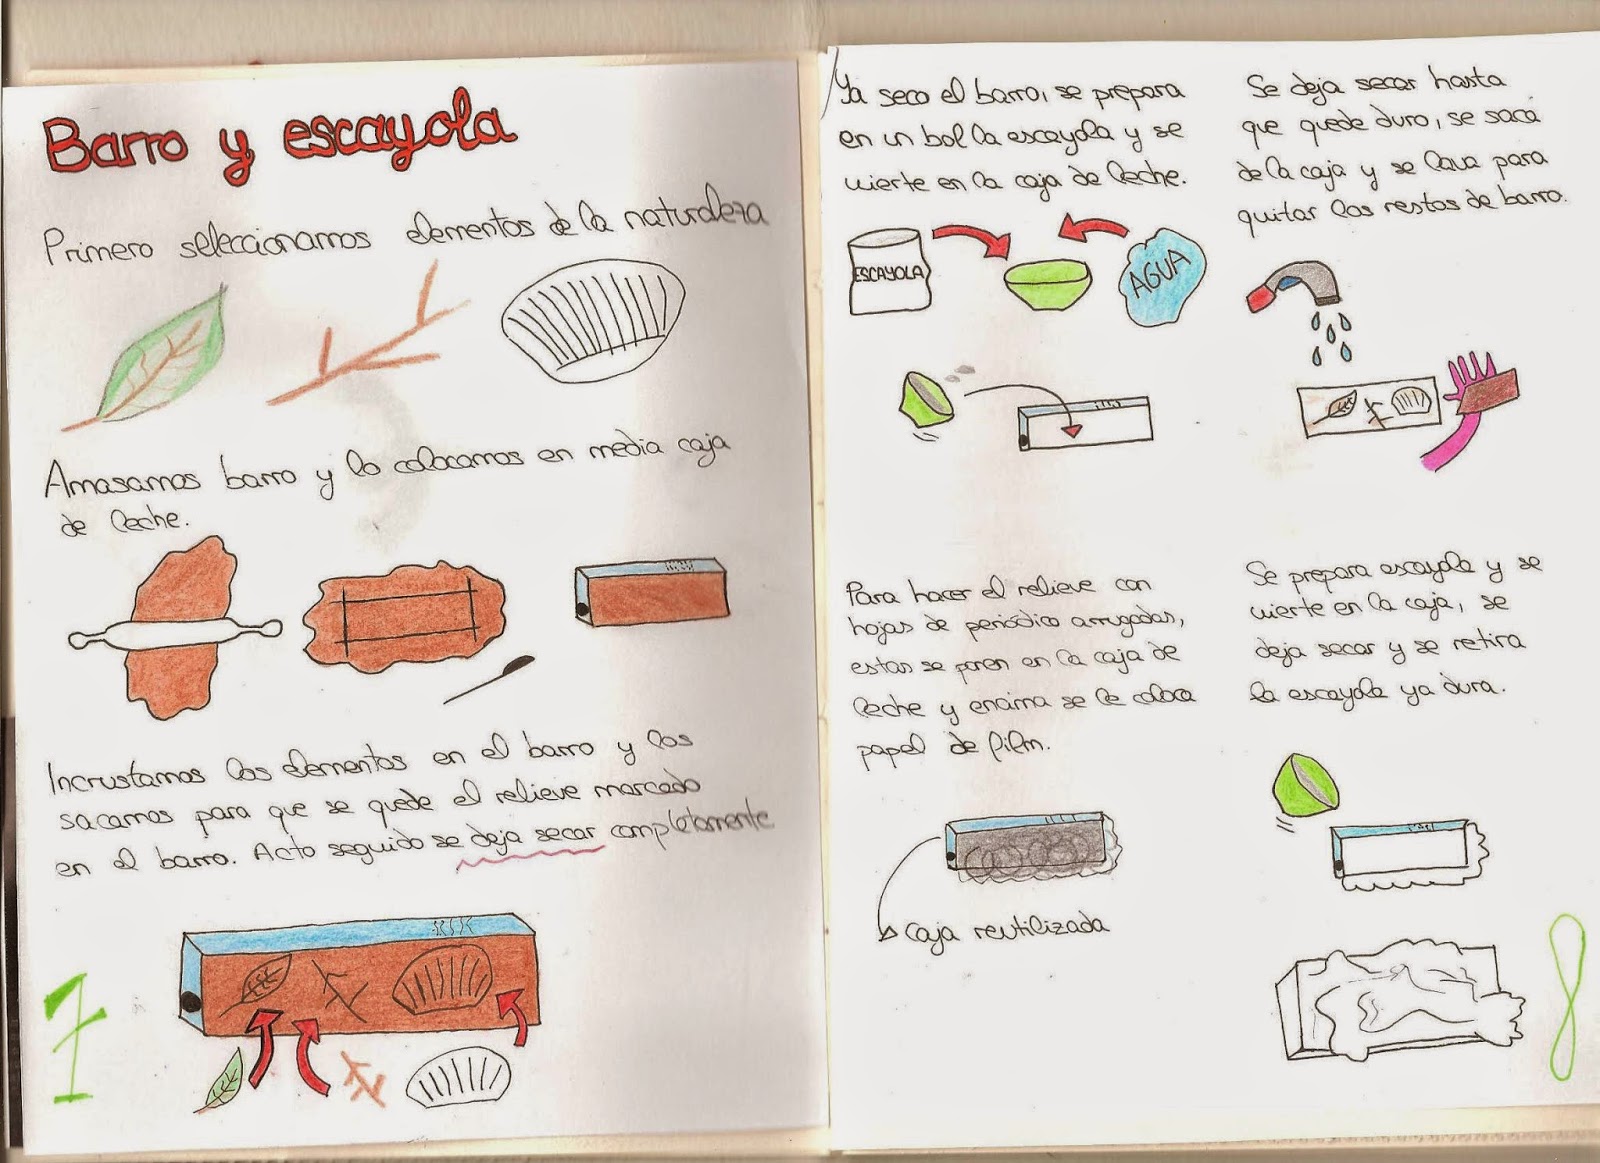 Barro y escayola
Primero seleccionamos elementos de la naturaleza
Amasamos barro y lo colocamos en media caja
de leche.
Incrustamos los elementos en el barro y los
sacamos para que se quede el relieve marcado
en el barro. Acto seguido se deja secar completamente
7
Ya seco el barro, se prepara
en un bol la escayola y se
vierte en la caja de leche.
ESCAYOLA
AGUA
Para hacer el relieve con
hojas de periódico arrugadas,
estas se ponen en la caja de
leche y encima se le coloca
papel de film.
Caja reutilizada
Se deja secar hasta
que quede duro, se saca
de la caja y se lava para
quitar los restos de barro.
Se prepara escayola y se
vierte en la caja, se
deja secar y se retira
la escayola ya dura.
8